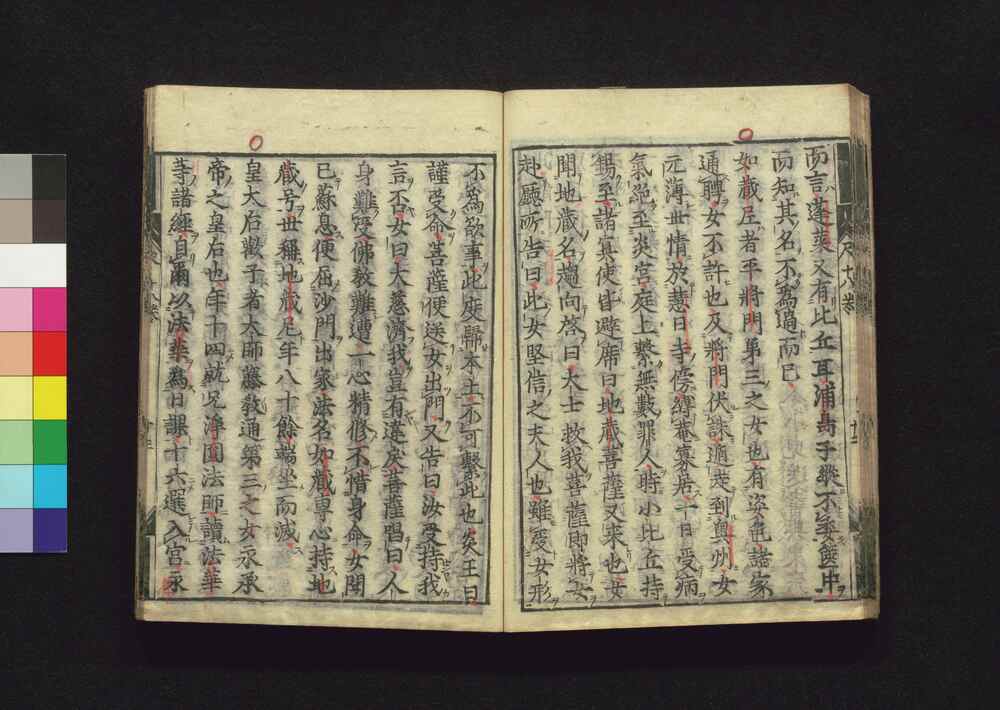 而言蓬萊又有此丘耳浦島子縱不委篋中
而知其名不爲過而已
如藏尼者平將門第三之女也有姿色諸家
通聘女不許也及將門伏誅遁走到奧州女
元薄世情於慧日寺傍縛菴寡居一日受病
氣絕至炎宮庭上繫無數罪人時小比丘持
錫至諸冥使皆避席曰地藏菩薩又來也女
聞地藏名趨向啓曰大士救我菩薩即將女
赴廳所告曰此女堅信之夫人也雖受女形
不爲欲事此度歸本土不可繫此也炎王曰
謹受命菩薩便送女出門又告曰汝受持我
言否女曰大慈濟我豈有違戾菩薩唱曰人
身難受佛敎難遭一心精修不惜身命女聞
已蘇息便屈沙門出家法名如藏專心持地
藏号世稱地藏尼年八十餘端坐而滅
皇太后歡子者太師藤敎通第三之女永承
帝之皇后也年十四就兄淨圓法師讀法華
等諸經自爾以法華爲日課十六選入宮永